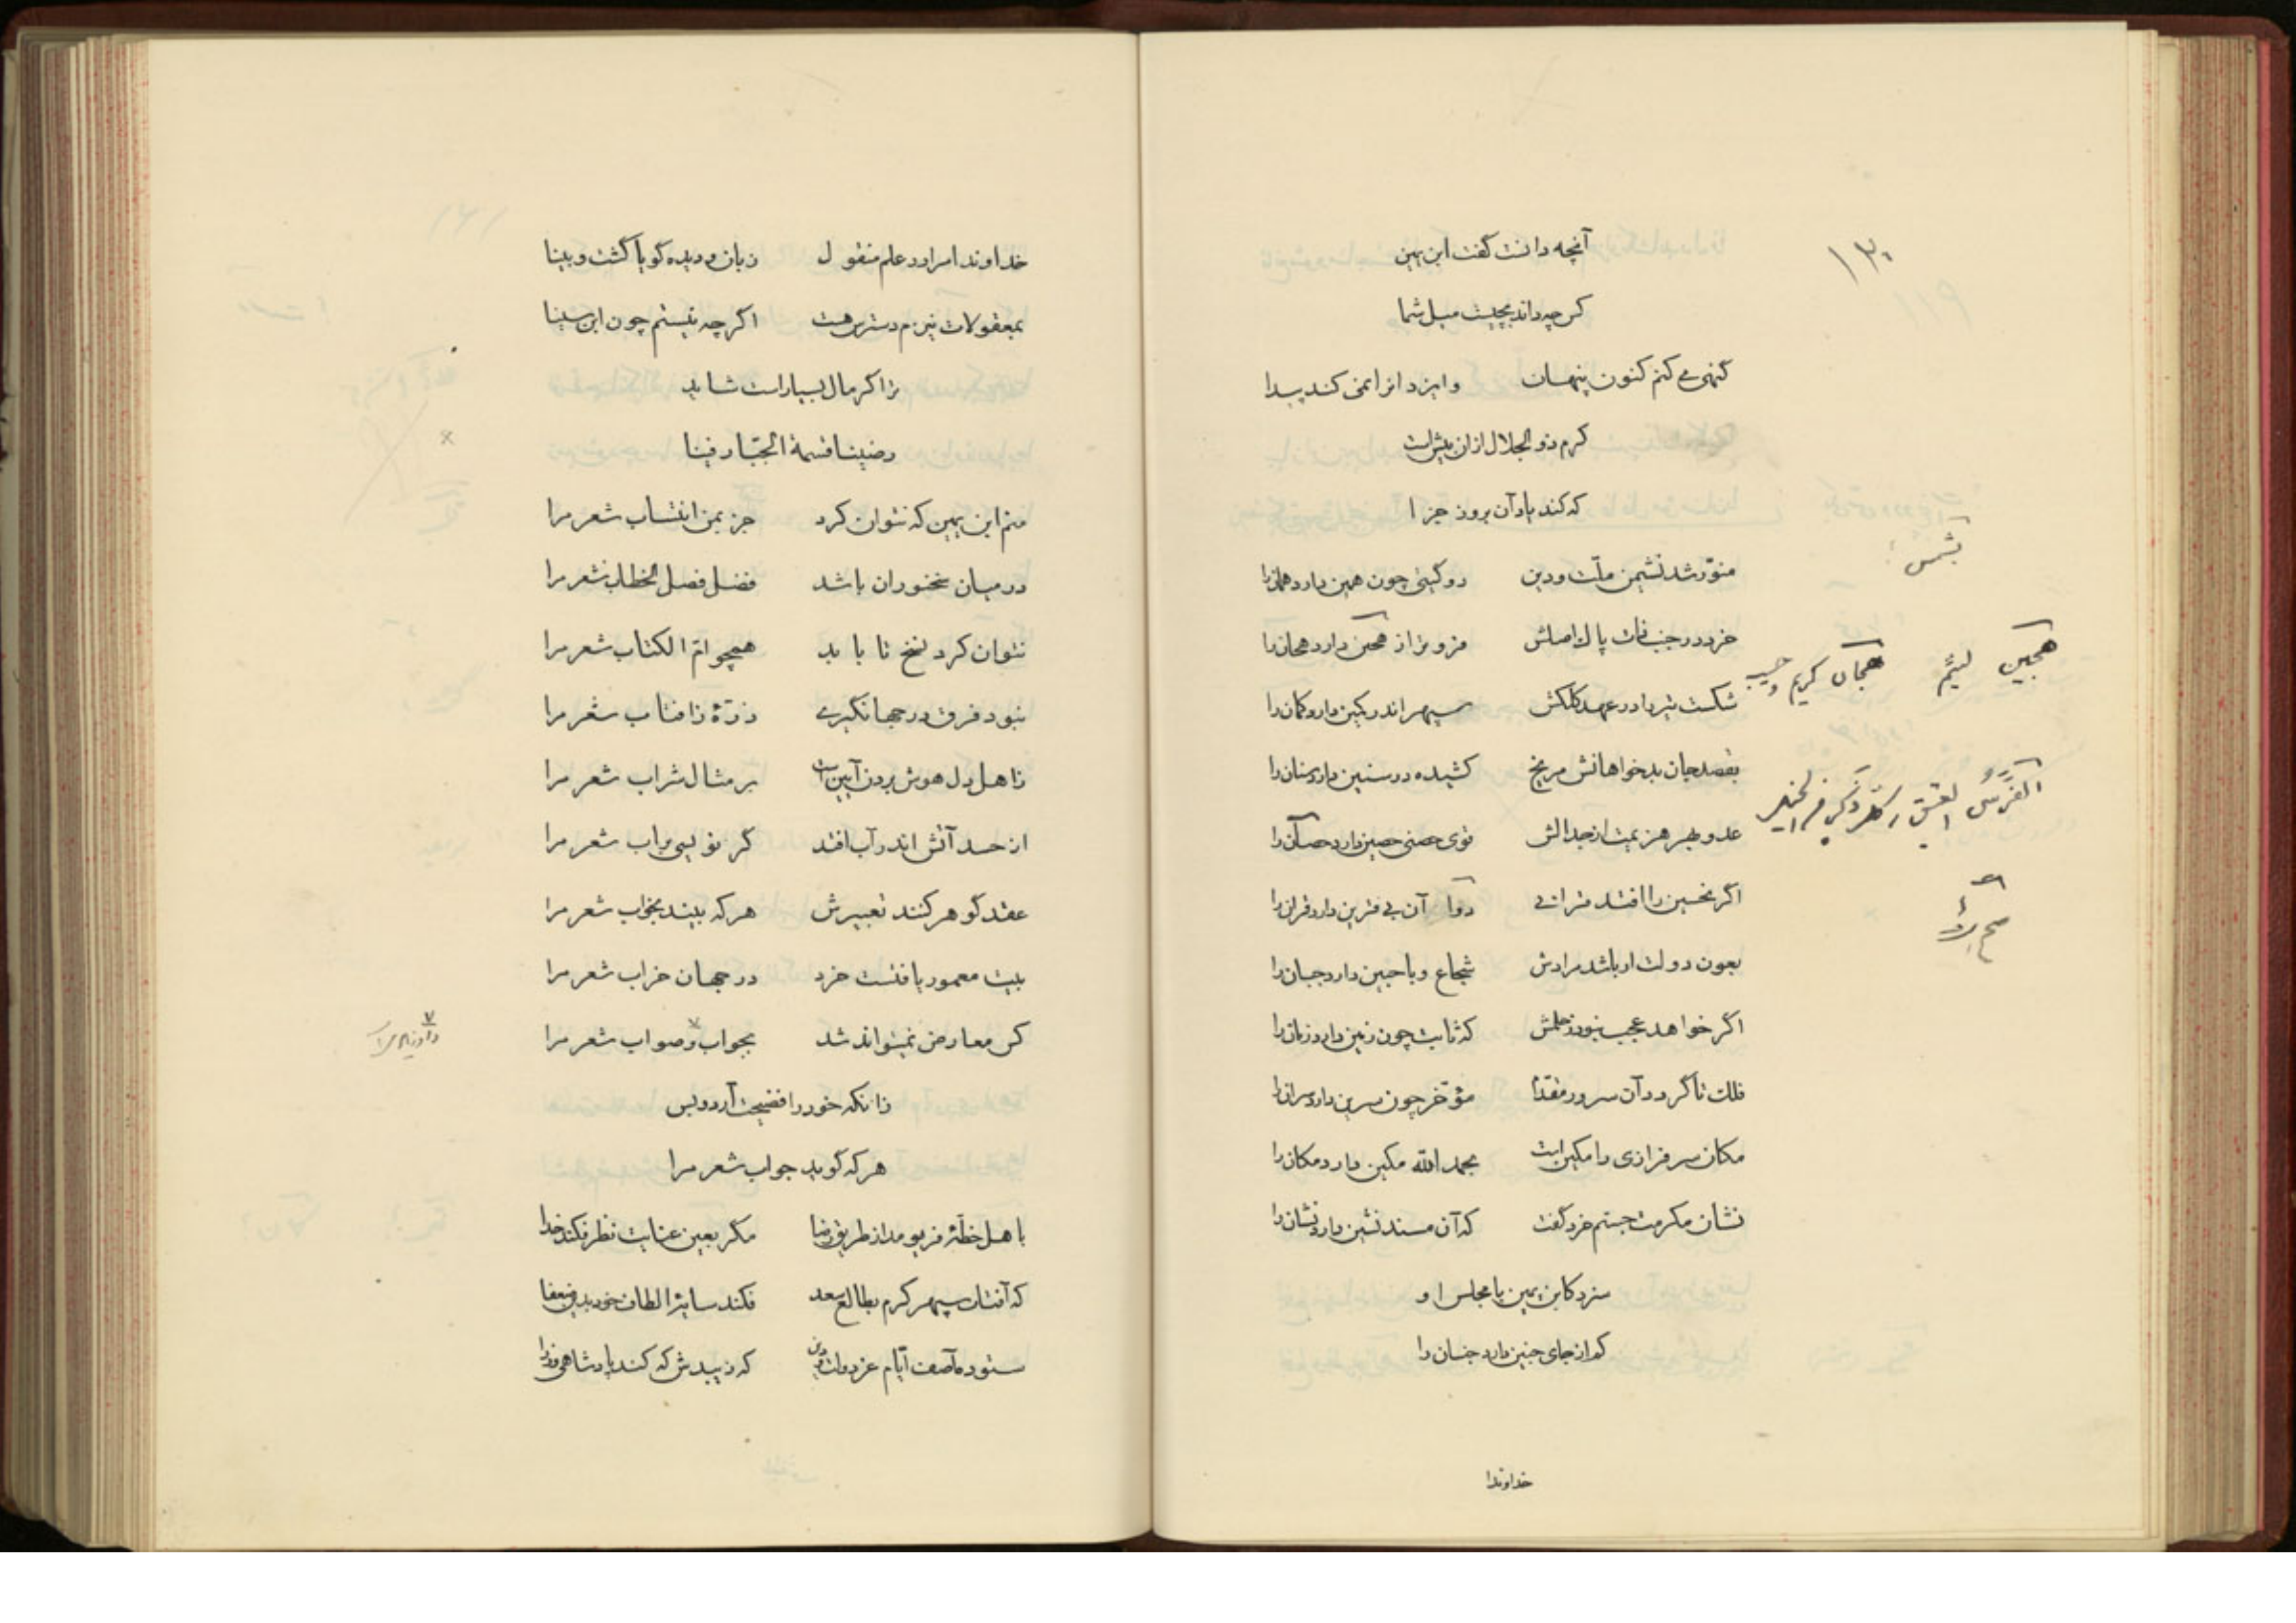 ۱۳۰
آنچه دانست گفت ابن یمین
کس چه داند بچیست میل شما
گنهی می کنم کنون پنهان وایزد انرا نمی کند پیدا
کرم ذو الجلال ازان بیش است
که کند یاد آن بروز جزا
منوّر شد نشیمن ملّت و دین دو گیتی چون همین دارد همانرا
خرد در جنب ذات پاک اصلش فزونتر از هجین دارد هجان را
شکست تیر با در عهد کلکش سپهر اندر کمین دارد کمان را
بقصد جان بدخواهانش مریخ کشیده در سنین دارد سنان را
عدو بهر هزیمت از جدالش قوی حصنی حصین دارد حصان را
اگر نحسین را افتد قرانی دوا آن بی قرین دارد قران را
بعون دولت او باشد مرادش شجاع و با جبین دارد جبان را
اگر خواهد عجب نبود ز حلمش که ثابت چون زمین دارد زمان را
فلک تا گردد آن سرور مقدّم مؤخّر چون سرین دارد سران را
مکان سرفرازی را مکین است بحمد الله مکین دارد مکان را
نشان مکرمت جستم خرد گفت که آن مسند نشین دارد نشان را
سزد کابن یمین با مجلس او
که از جای جنین دارد جنان را
بشمس
هجین لئیم هجان کریم و حسیب
خداوندا
خداوندا مرا در علم منقول زبان و دیده گویا گشت و بینا
بمعقولات نیزم دسترس هست اگر چه نیستم چون ابن سینا
ترا گر مال بسیار است شاید
رضینا قسمة الجبّار فینا
منم ابن یمین که نتوان کرد جز بمن انتساب شعر مرا
در میان سخنوران باشد فضل فصل الخطاب شعر مرا
نتوان کرد نسخ تا باید همچو امّ الکتاب شعر مرا
نبود فرق در جهانگیری ذرّهٔ ز افتاب شعر مرا
ز اهل دل هوش بردن آیین است بر مثال شراب شعر مرا
از حسد آتش اندر آب افتد گر نویسی بر آب شعر مرا
عقد گوهر کنند تعبیرش هر که بیند بخواب شعر مرا
بیت معمور یافتست خرد در جهان خراب شعر مرا
کس معارض نمیتواند شد بجواب و صواب شعر مرا
زانکه خود را فضیحت آرد و بس
هر که گوید جواب شعر مرا
با اهل خطّهٔ فریومد از طریق رضا مگر بعین عنایت نظر فکند خدا
که آفتاب سپهر کرم بطالع سعد فکند سایهٔ الطاف خود بدین ضعفا
ستوده آصف ایّام عز دولت و دین که زیبدش که کند پادشاهی وزرا